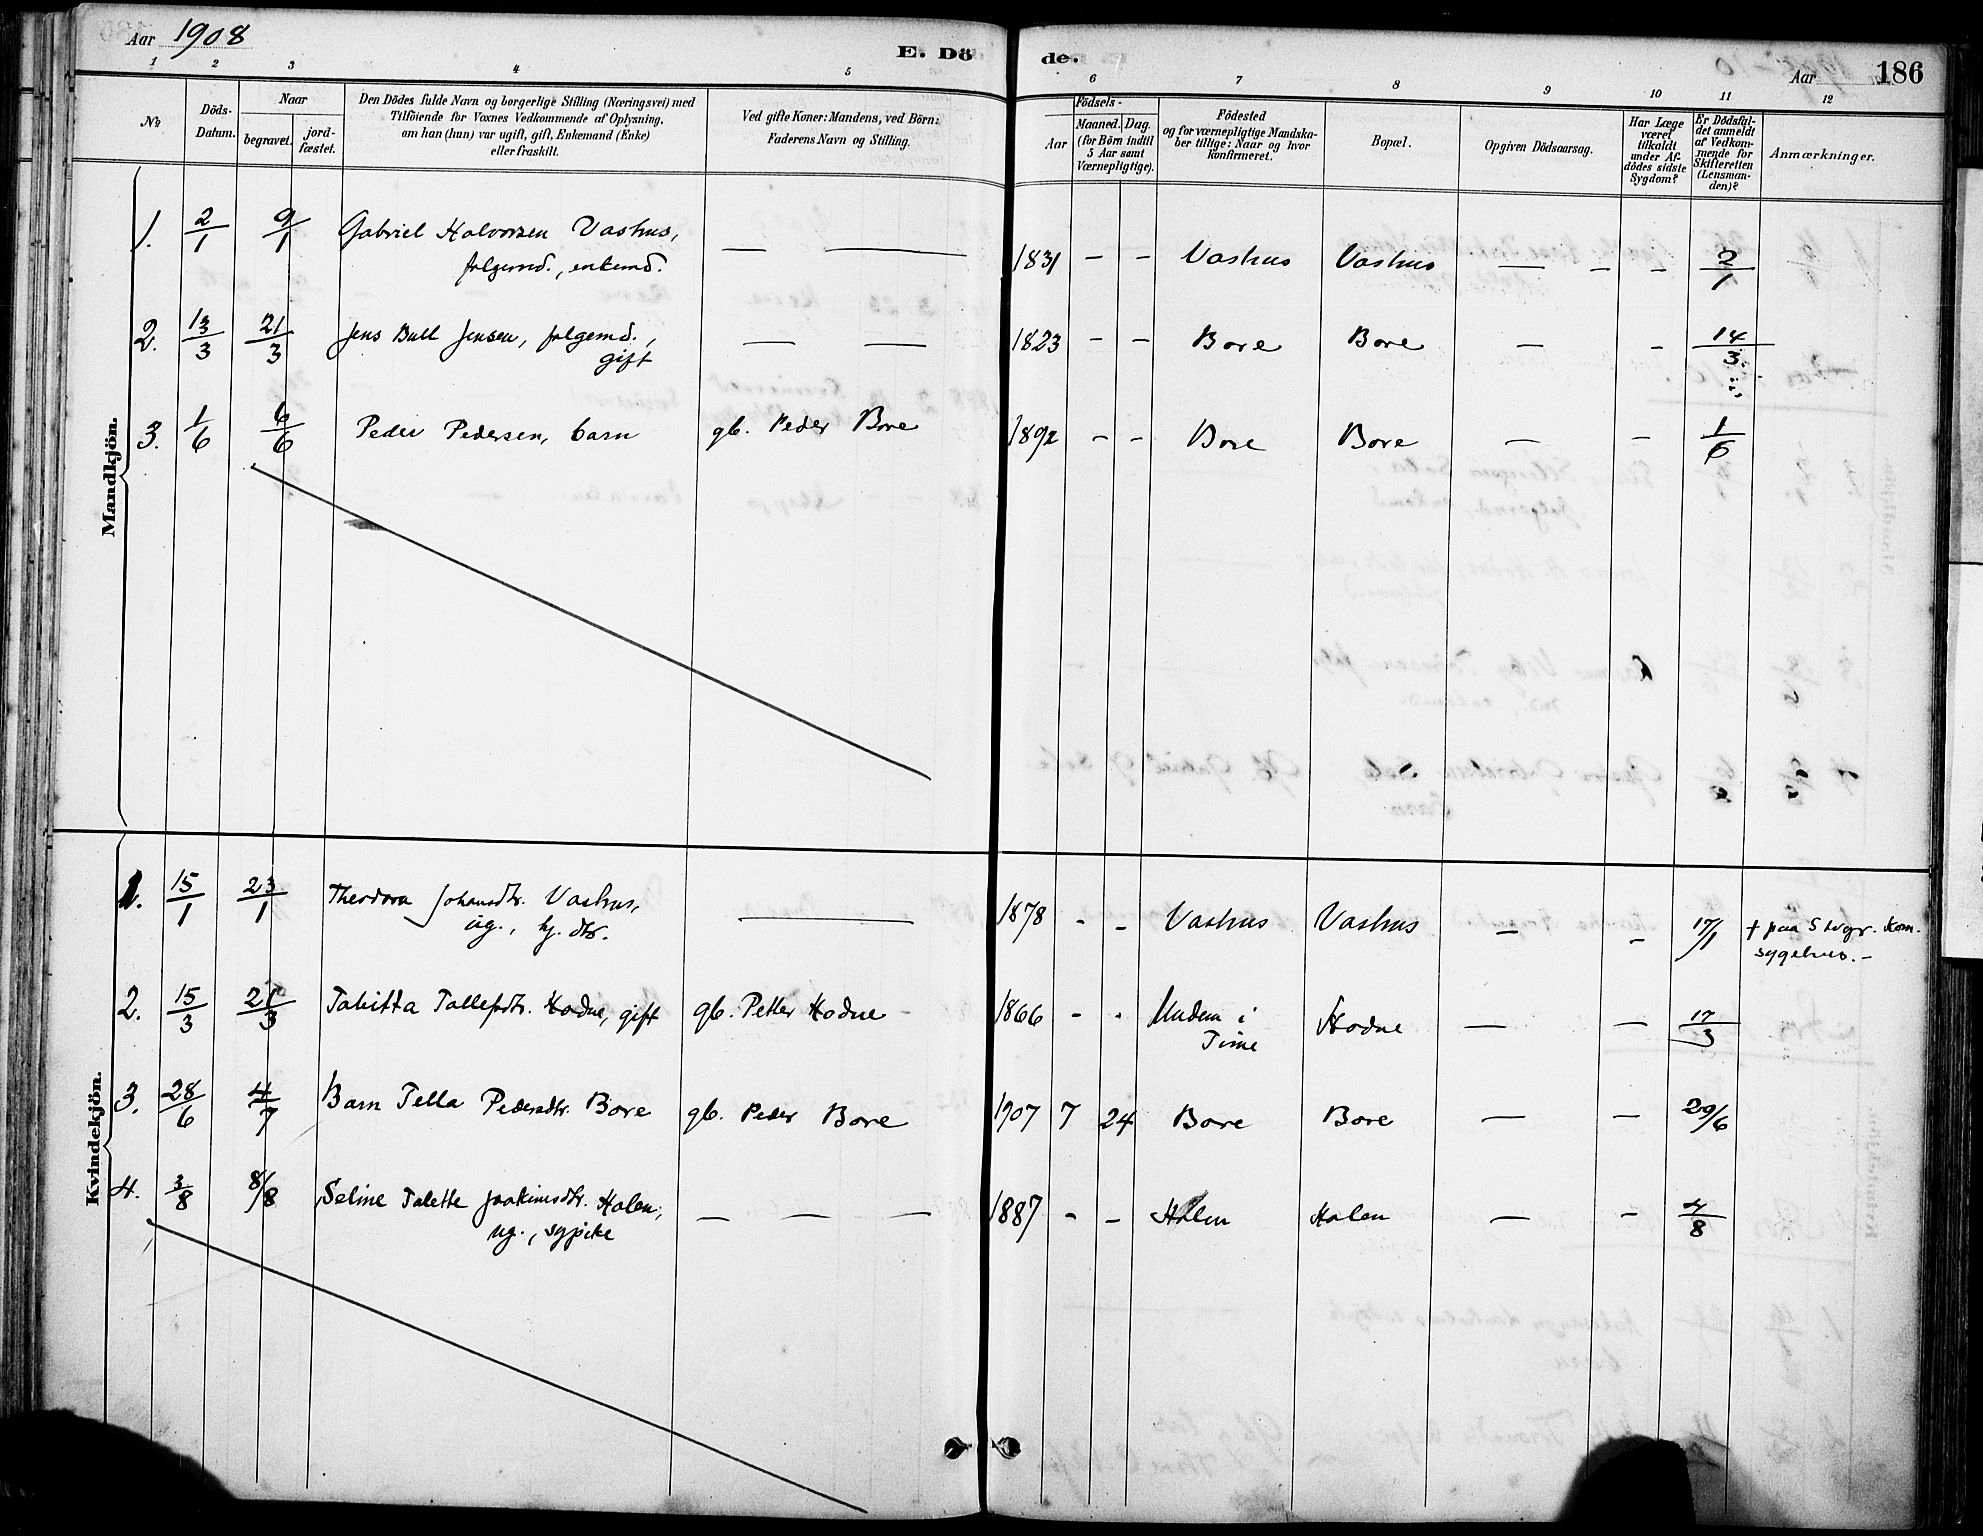 Aar 1908
E. Dö de.
Aar 186
1 2 3 4 5 6 7 8 9 10 11 12
No
Döds-
Datum.
Naar
begravet.
jord-
fæstet.
Den Dödes fulde Navn og borgerlige Stilling (Næringsvei) med
Tilföiende for Voxnes Vedkommende af Oplysning,
om han (hun) var ugift, gift, Enkemand (Enke)
eller fraskilt.
Ved gifte Koner: Mandens, ved Börn:
Faderens Navn og Stilling.
Födsels-
Aar
Maaned. Dag.
(for Börn indtil
5 Aar samt
Værnepligtige).
Födested
og for værnepligtige Mandska-
ber tillige: Naar og hvor
konfirmeret.
Bopæl.
Opgiven Dödsaarsag.
Har Læge
været
tilkaldt
under Af-
dödes sidste
Sygdom?
Er Dödsfal-
det anmeldt
af Vedkom-
mende for
Skifteretten
(Lensman-
den)?
Anmærkninger.
Mandkjön.
1. 2/1 9/1 Gabriel Halvorsen Vashus, — — 1831 - - Vashus Vashus — - - 2/1
folgemd., enkemd.
2. 13/3 21/3 Jens Bull Jensen, folgemd., — — 1823 - - Bore Bore — - 14/3
gift
3. 1/6 6/6 Peder Pedersen, barn gb. Peder Bore 1892 - - Bore Bore — - 1/6
Kvindekjön.
1. 15/1 23/1 Theodora Johansdtr. Vashus, — 1878 - - Vashus Vashus — - 17/1 † paa Stvgr. Kom.
ug., hj. dtr. sygehus.-
2. 15/3 21/3 Tabitta Tollefsdtr. Hodne, gift gb. Petter Hodne - 1866 - - Undem i Hodne — — 17/3
Time
3. 28/6 4/7 Barn Tella Pedersdtr. Bore gb. Peder Bore 1907 7 24 Bore Bore — — 29/6
4. 3/8 8/8 Seline Talette Joakimsdtr. Holen, — — — 1887 - - Holen Holen — - 4/8
ug., sypike